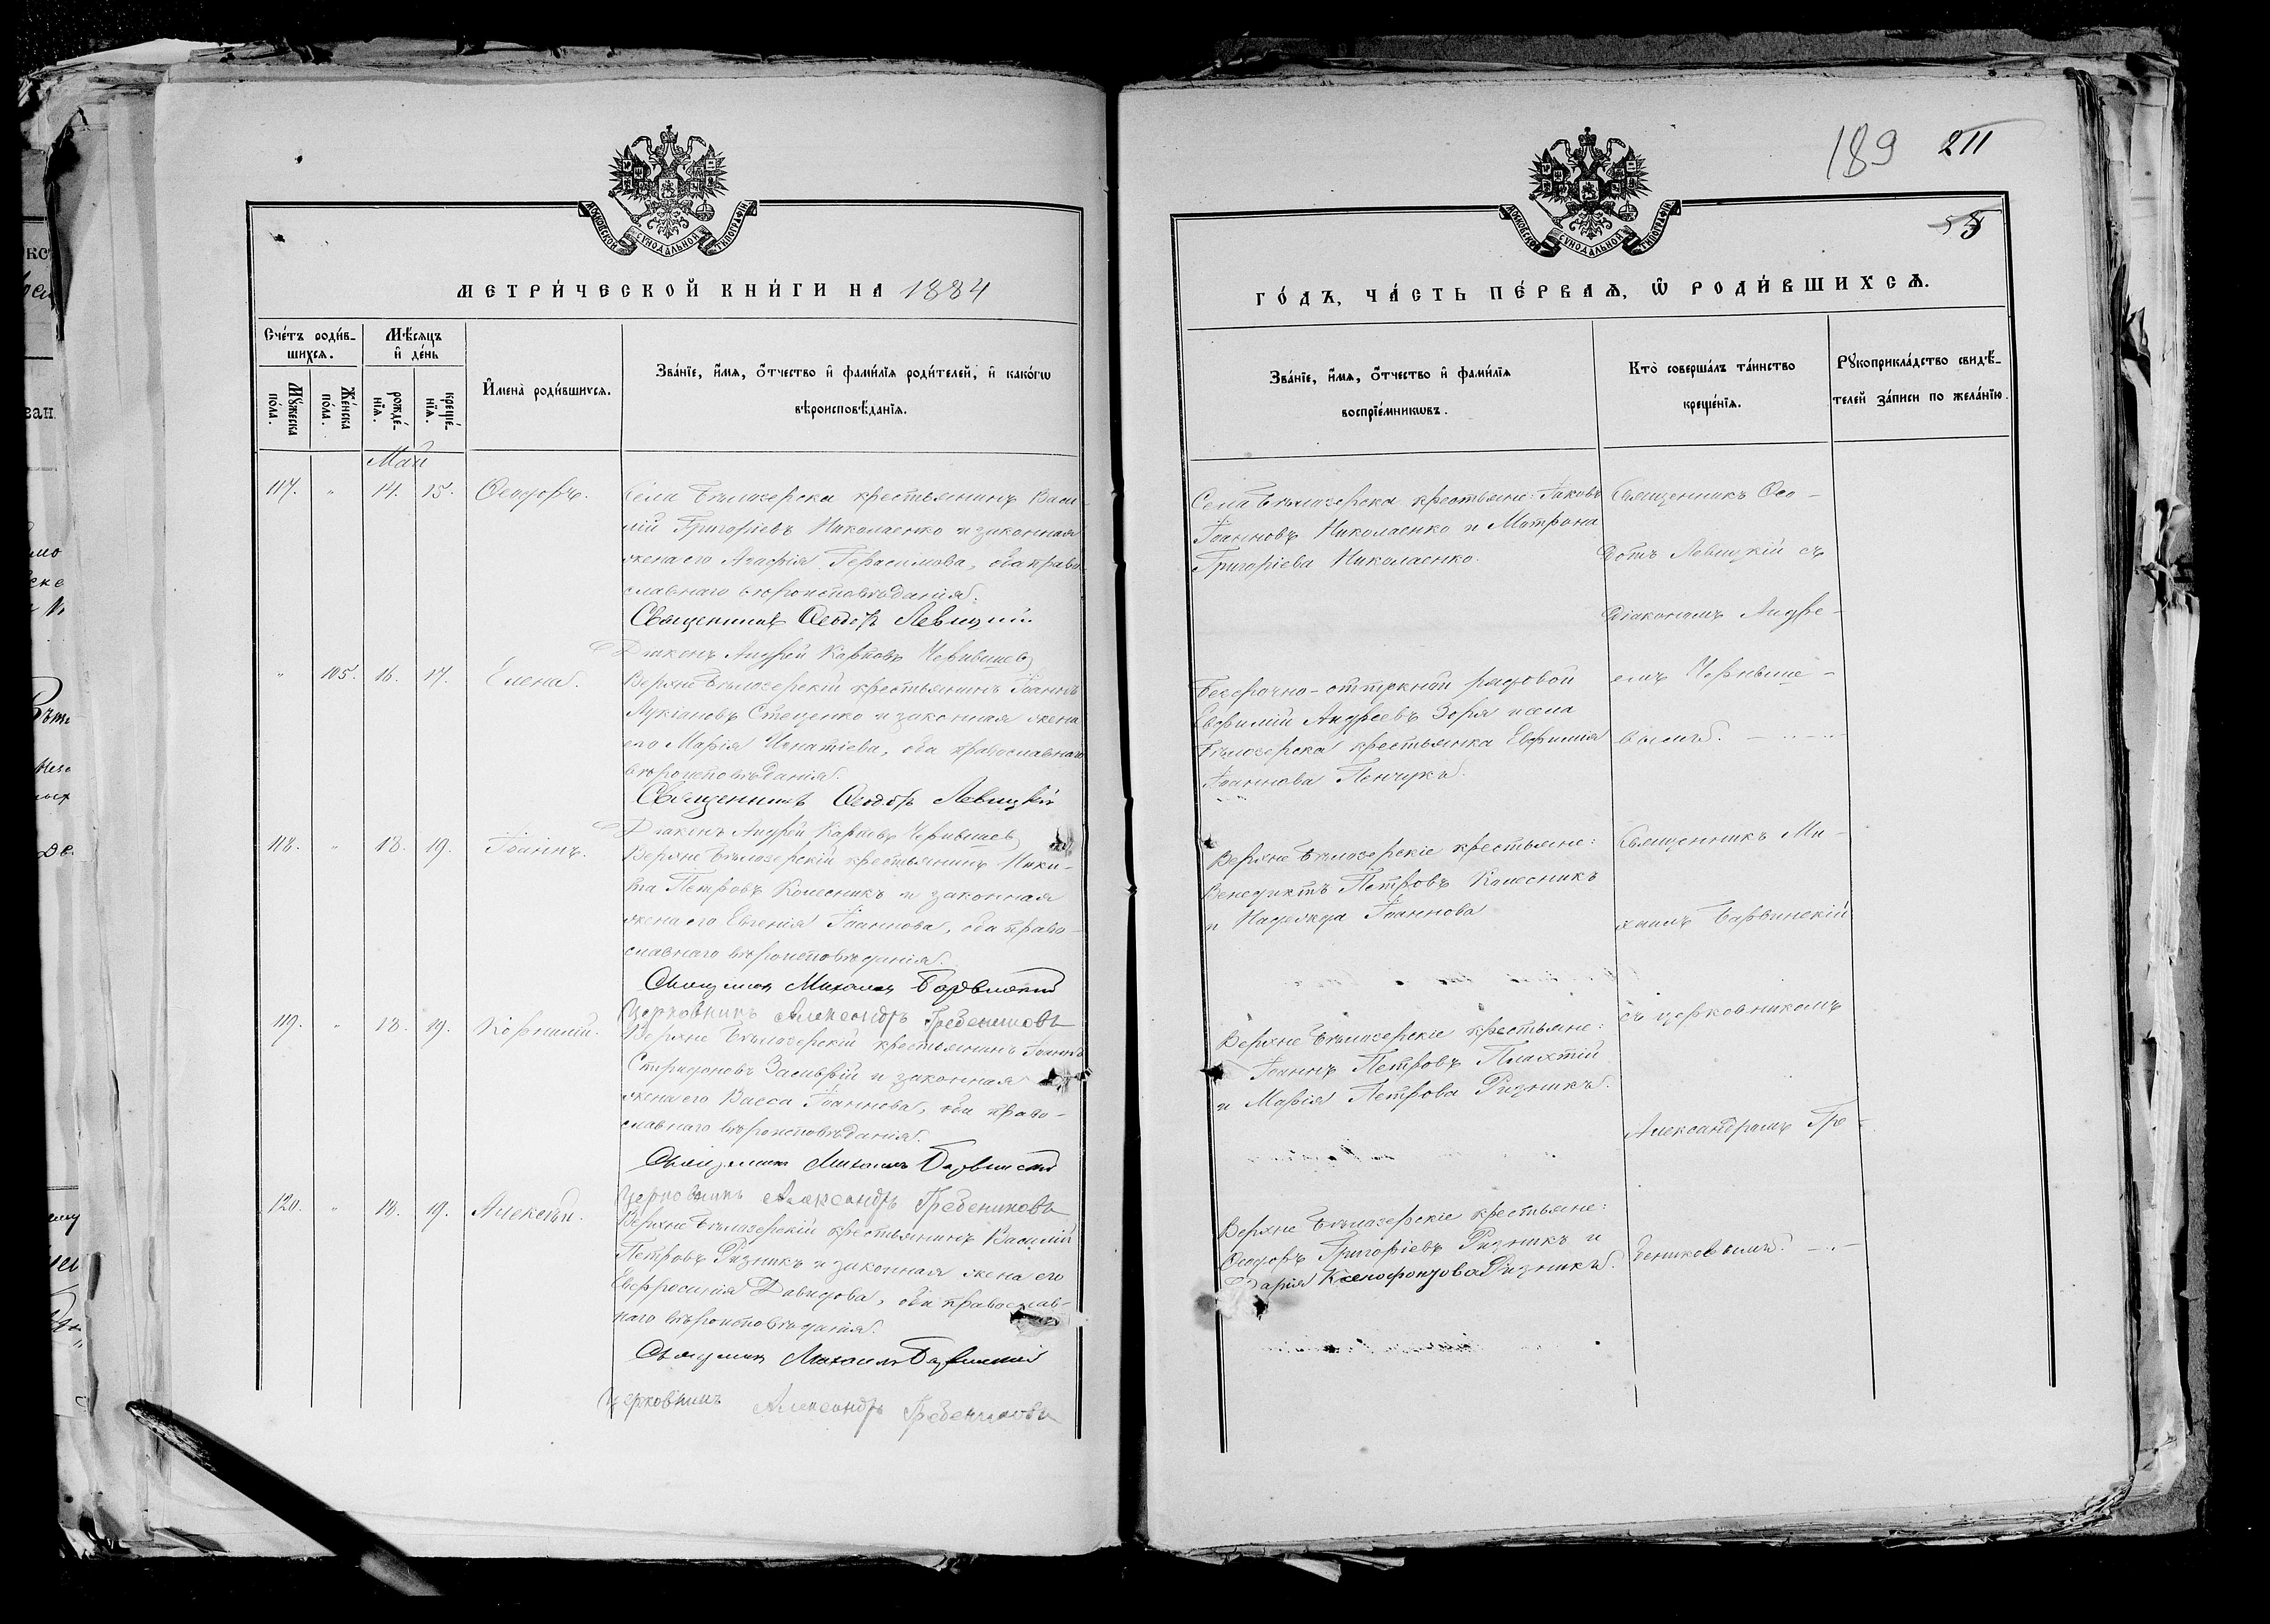 МОСКОВСКОЙ СѴНОДАЛЬНОЙ ТИПОГРАФІИ
МЕТРИ́ЧЕСКОЙ КНИ́ГИ НА 1884
Сче́тъ роди́в-
шихсѧ.
Мꙋжеска по́ла.
Же́нска по́ла.
Мѣ́сѧцъ и҆ де́нь
рожде́-
нїѧ.
креще́-
нїѧ.
И҆мена̀ роди́вшихсѧ.
Зва́нїе, и҆́мѧ, ѻ҆́тчество и҆ фами́лїѧ роди́телей, и҆ како́гѡ
вѣроисповѣ́данїѧ.
Май
117. " 14. 15. Ѳеодоръ.
Села Бѣлозерска крестьянинъ Васи-
лій Григоріевъ Николаенко и законная
жена его Агафія Герасимова, оба право-
славнаго вѣроисповѣданія.
Священникъ Ѳеодоръ Левицкій
Діаконъ Андрей Карповъ Чернышевъ
" 105. 16. 17. Елена.
Верхне Бѣлозерскій крестьянинъ Іоаннъ
Лукіановъ Стеценко и законная жена
его Марія Игнатіева, оба православнаго
вѣроисповѣданія.
Священникъ Ѳеодоръ Левицкій
Діаконъ Андрей Карповъ Чернышевъ
118. " 18. 19. Іоаннъ.
Верхне Бѣлозерскій крестьянинъ Ники-
та Петровъ Колесникъ и законная
жена его Евгенія Іоаннова, оба право-
славнаго вѣроисповѣданія.
Священникъ Михаилъ Барвинскій
Церковникъ Александръ Гребениковъ
119. " 18. 19. Корнилій.
Верхне Бѣлозерскій крестьянинъ Іоаннъ
Спиридоновъ и законная
жена его Васса Іоаннова, оба право-
славнаго вѣроисповѣданія.
Священникъ Михаилъ Барвинскій
Церковникъ Александръ Гребениковъ
120. " 18. 19. Алексѣй.
Верхне Бѣлозерскій крестьянинъ Василій
Петровъ Ризникъ и законная жена его
Евфросинія Давидова, оба православ-
наго вѣроисповѣданія.
Священникъ Михаилъ Барвинскій
Церковникъ Александръ Гребениковъ
189 211
55
МОСКОВСКОЙ СѴНОДАЛЬНОЙ ТИПОГРАФІИ
ГО́ДЪ, ЧА́СТЬ ПЕ́РВАѦ, Ѡ҆ РОДИ́ВШИХСѦ.
Зва́нїе, и҆́мѧ, ѻ҆́тчество и҆ фами́лїѧ
воспрїе́мникѡвъ.
Кто̀ соверша́лъ та́инство
креще́нїѧ.
Рꙋкоприкла́дство свидѣ́-
телей за́писи по жела́нїю.
Села Бѣлозерска крестьяне: Іаковъ
Іоанновъ Николаенко и Матрона
Григоріева Николаенко.
Священникъ Ѳео-
доръ Левицкій съ
діакономъ Андре-
емъ Черныше-
вымъ.
Безсрочно-отпускной рядовой
Евфимій Андреевъ Зоря и села
Бѣлозерска крестьянка Евфимія
Іоаннова Пенчукъ.
Верхне Бѣлозерскіе крестьяне:
Венедиктъ Петровъ Колесникъ
и Надежда Іоаннова
Священникъ Ми-
хаилъ Барвинскій
съ церковникомъ
Александромъ Гре-
бениковымъ.
Верхне Бѣлозерскіе крестьяне:
Іоаннъ Петровъ Плахтій
и Марія Петрова Ризникъ.
Верхне Бѣлозерскіе крестьяне:
Ѳеодоръ Григоріевъ Ризникъ и
Дарія Ксенофонтова Ризникъ.